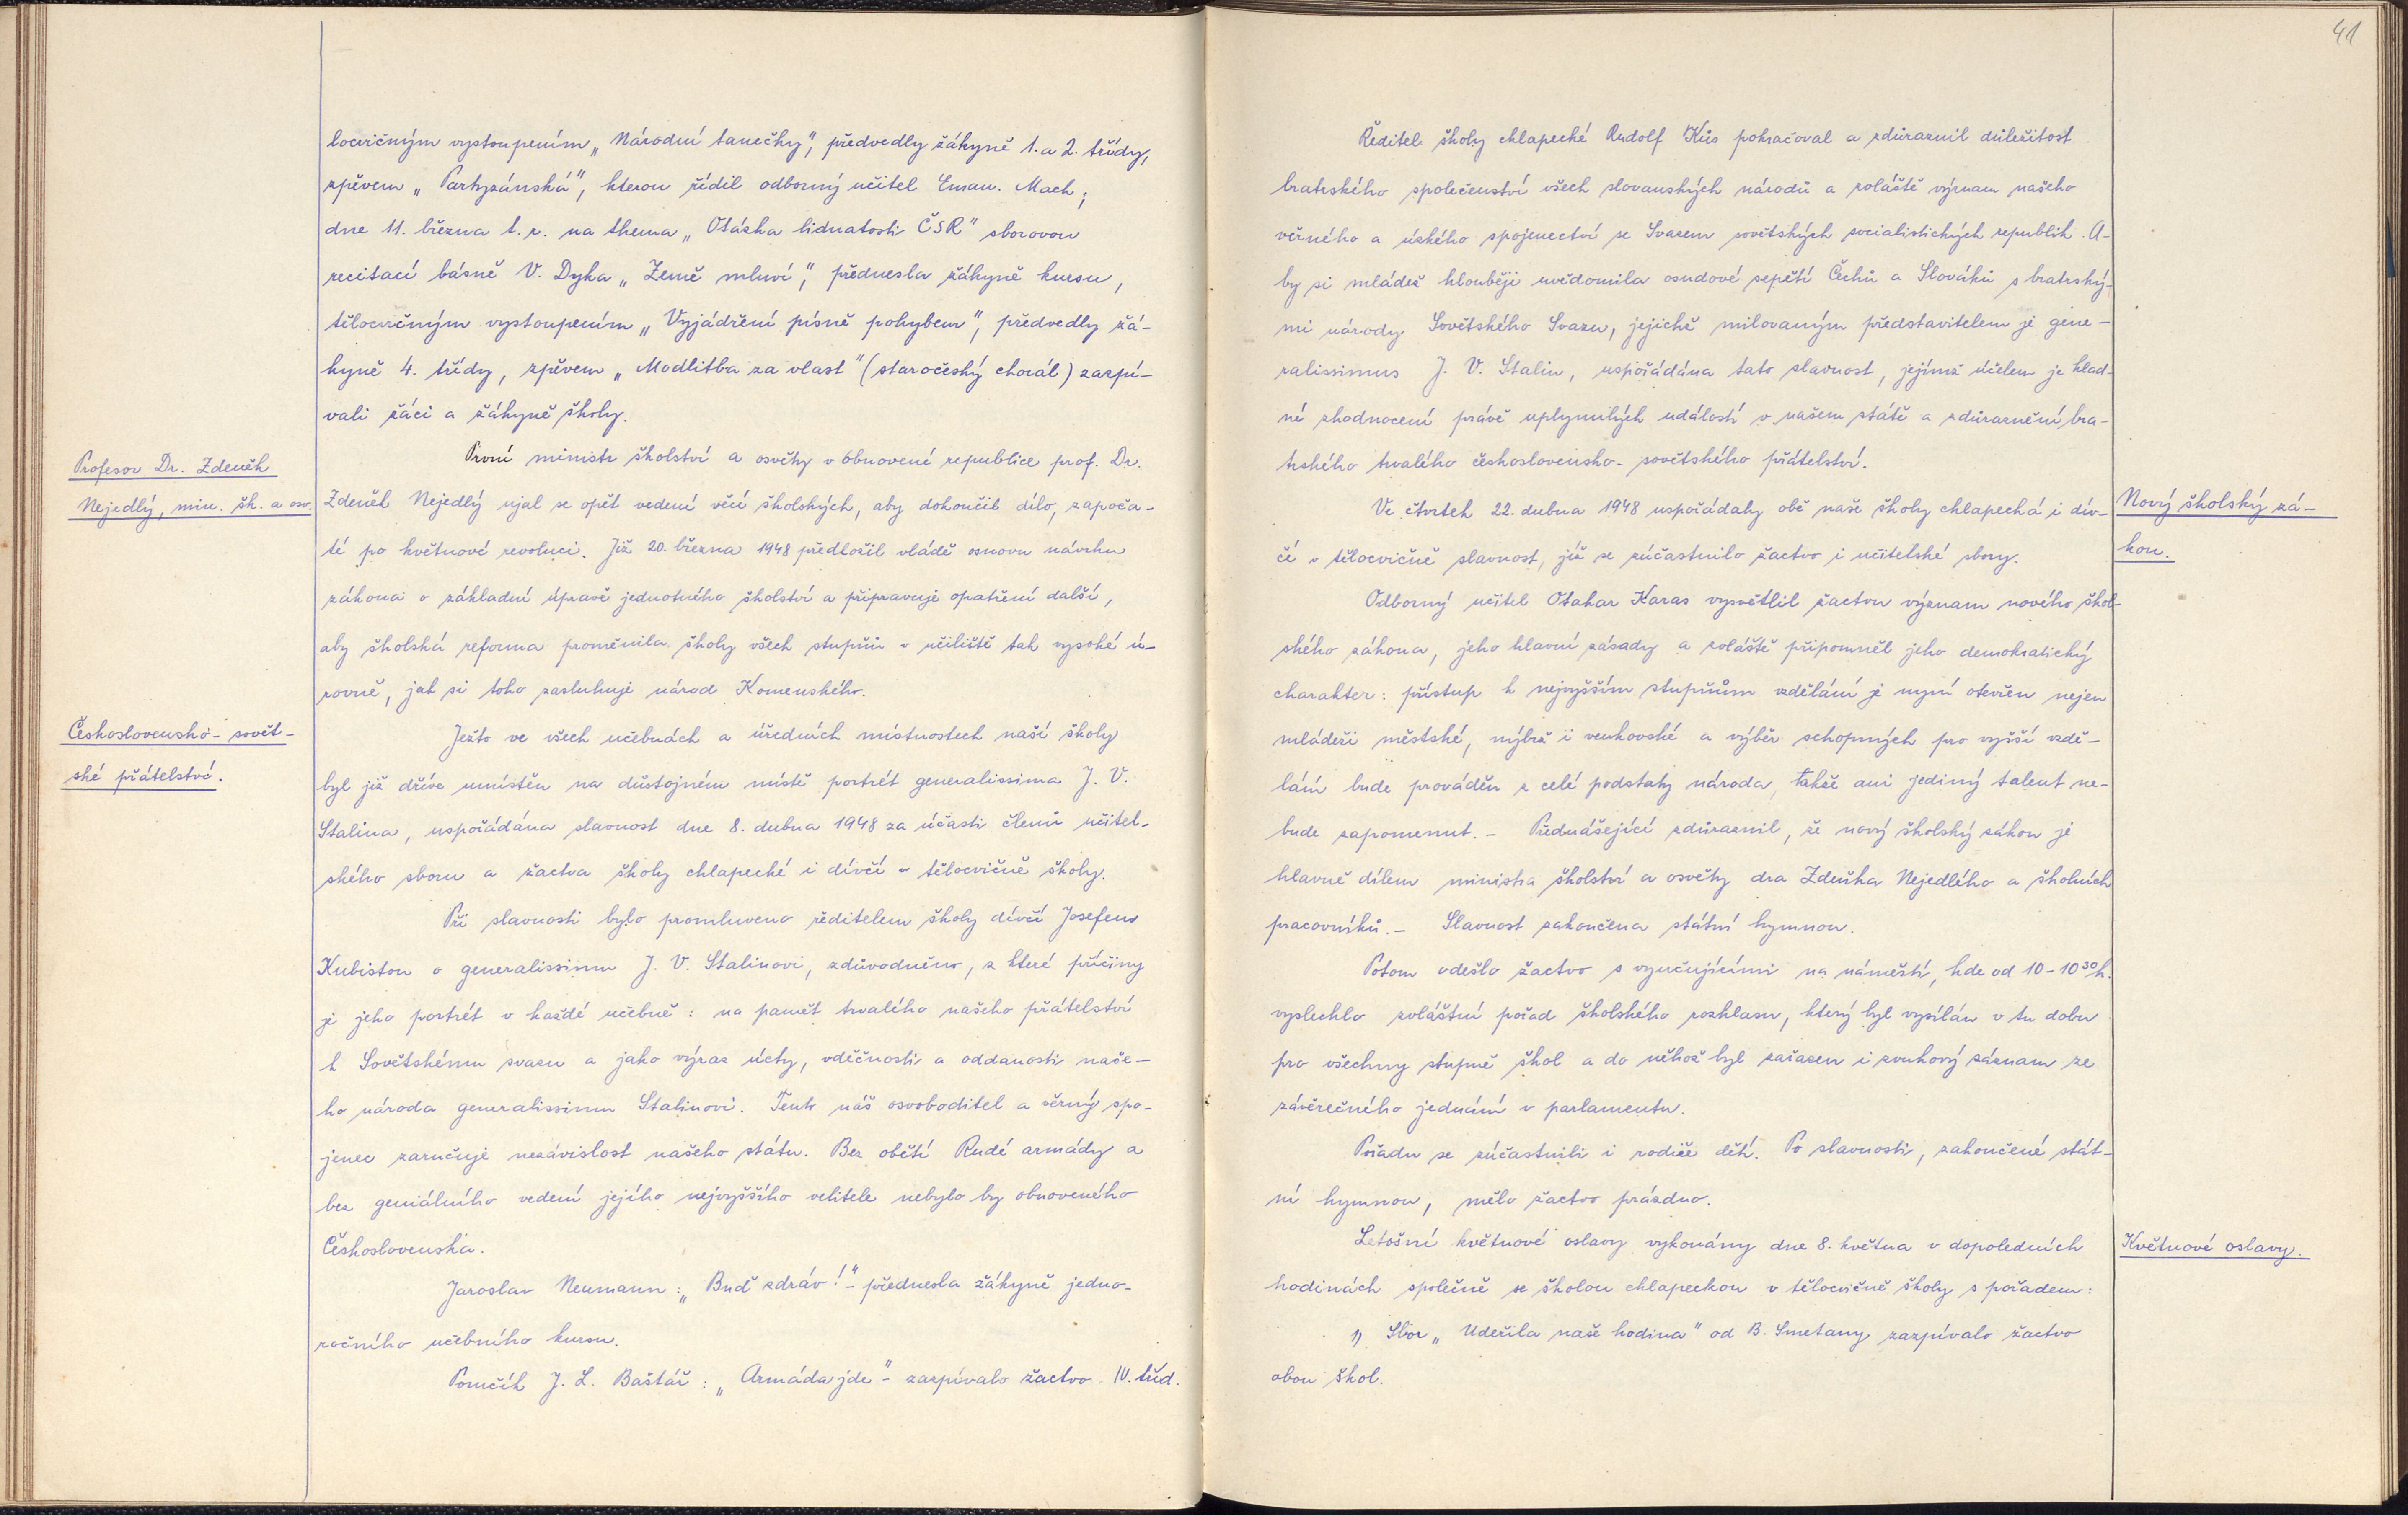 locvičným vystoupením „Národní tanečky", předvedly žákyně 1. a 2. třídy,
zpěvem „Partyzánská", kterou řídil odborný učitel Eman. Mach;
dne 11. března t. r. na thema „Otázka lidnatosti ČSR" sborovou
recitací básně V. Dyka „Země mluví", přednesla žákyně kursu,
tělocvičným vystoupením „Vyjádření písně pohybem", předvedly žá-
kyně 4. třídy, zpěvem „Modlitba za vlast" (staročeský chorál) zazpí-
vali žáci a žákyně školy.
Profesor Dr. Zdeněk
Nejedlý, min. šk. a osv.
První ministr školství a osvěty v obnovené republice prof. Dr.
Zdeněk Nejedlý ujal se opět vedení věcí školských, aby dokončil dílo, započa-
té po květnové revoluci. Již 20. března 1948 předložil vládě osnovu návrhu
zákona o základní úpravě jednotného školství a připravuje opatření další,
aby školská reforma proměnila školy všech stupňů v učiliště tak vysoké ú-
rovně, jak si toho zasluhuje národ Komenského.
Československo-sovět-
ské přátelství.
Ježto ve všech učebnách a úředních místnostech naší školy
byl již dříve umístěn na důstojném místě portrét generalissima J. V.
Stalina, uspořádána slavnost dne 8. dubna 1948 za účasti členů učitel-
ského sboru a žactva školy chlapecké i dívčí v tělocvičně školy.
Při slavnosti bylo promluveno ředitelem školy dívčí Josefem
Kubistou o generalissimu J. V. Stalinovi, zdůvodněno, z které příčiny
je jeho portrét v každé učebně: na paměť trvalého našeho přátelství
k Sovětskému svazu a jako výraz úcty, vděčnosti a oddanosti naše-
ho národa generalissimu Stalinovi. Tento náš osvoboditel a věrný spo-
jenec zaručuje nezávislost našeho státu. Bez obětí Rudé armády a
bez geniálního vedení jejího nejvyššího velitele nebylo by obnoveného
Československa.
Jaroslav Neumann: „Buď zdráv!" - přednesla žákyně jedno-
ročního učebního kursu.
Poručík J. L. Baštář: „Armáda jde" - zazpívalo žactvo IV. tříd.
41
Ředitel školy chlapecké Rudolf Kůs pokračoval a zdůraznil důležitost
bratrského společenství všech slovanských národů a zvláště význam našeho
věrného a úzkého spojenectví se Svazem sovětských socialistických republik. A-
by si mládež hlouběji uvědomila osudové sepětí Čechů a Slováků s bratrský-
mi národy Sovětského Svazu, jejichž milovaným představitelem je gene-
ralissimus J. V. Stalin, uspořádána tato slavnost, jejímž účelem je klad-
né zhodnocení právě uplynulých událostí v našem státě a zdůraznění bra-
trského trvalého československo-sovětského přátelství.
Nový školský zá-
kon.
Ve čtvrtek 22. dubna 1948 uspořádaly obě naše školy chlapecká i dív-
čí v tělocvičně slavnost, jíž se zúčastnilo žactvo i učitelské sbory.
Odborný učitel Otakar Karas vysvětlil žactvu význam nového škol-
ského zákona, jeho hlavní zásady a zvláště připomněl jeho demokratický
charakter: přístup k nejvyšším stupňům vzdělání je nyní otevřen nejen
mládeži městské, nýbrž i venkovské a výběr schopných pro vyšší vzdě-
lání bude prováděn z celé podstaty národa, takže ani jediný talent ne-
bude zapomenut. - Přednášející zdůraznil, že nový školský zákon je
hlavně dílem ministra školství a osvěty dra Zdeňka Nejedlého a školních
pracovníků. - Slavnost zakončena státní hymnou.
Potom odešlo žactvo s vyučujícími na náměstí, kde od 10-10³⁰ h.
vyslechlo zvláštní pořad školského rozhlasu, který byl vysílán v tu dobu
pro všechny stupně škol a do něhož byl zařazen i zvukový záznam ze
závěrečného jednání v parlamentu.
Pořadu se zúčastnili i rodiče dětí. Po slavnosti, zakončené stát-
ní hymnou, mělo žactvo prázdno.
Květnové oslavy.
Letošní květnové oslavy vykonány dne 8. května v dopoledních
hodinách společně se školou chlapeckou v tělocvičně školy s pořadem:
1) Sbor „Udeřila naše hodina" od B. Smetany zazpívalo žactvo
obou škol.